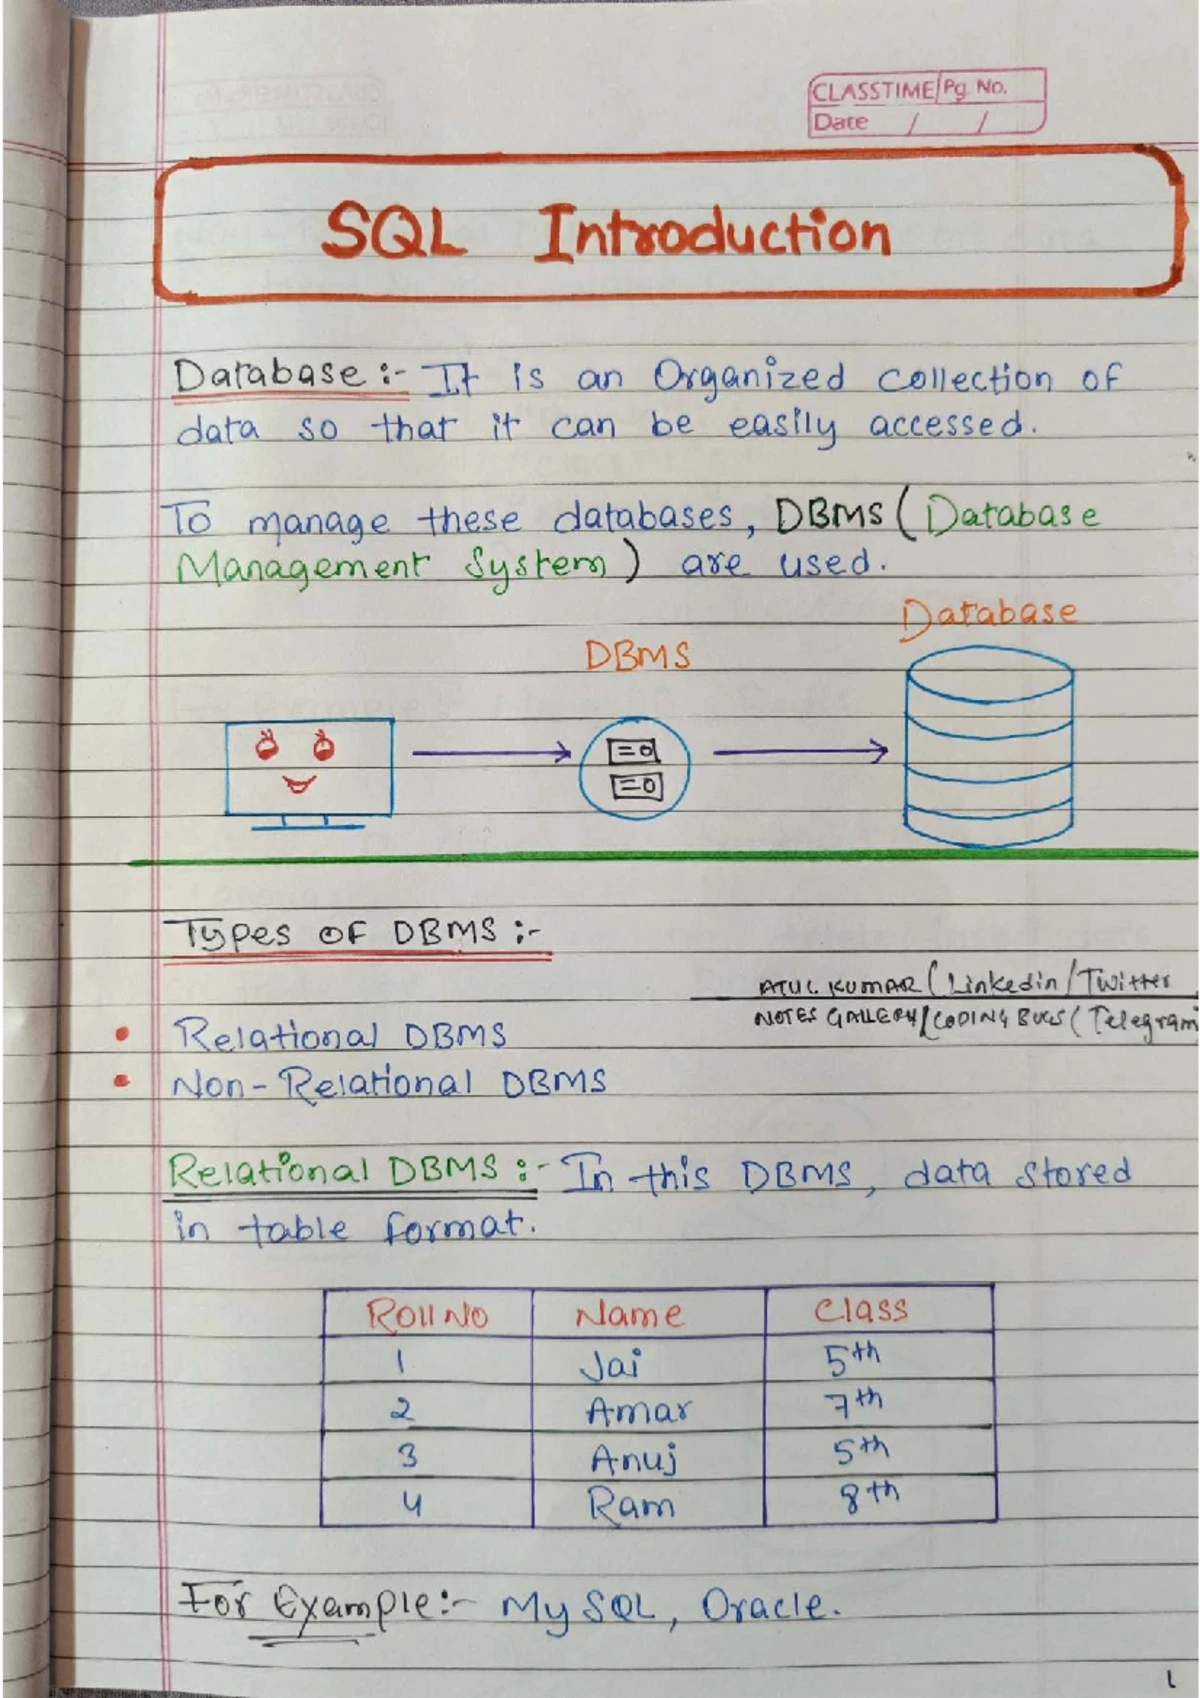 CLASSTIME Pg. No.
Date / /
SQL Introduction
Database :- It is an Organized collection of
data so that it can be easily accessed.
To manage these databases, DBMS (Database
Management System) are used.
Database
DBMS
Types OF DBMS :-
ATUL KUMAR (Linkedin/Twitter
NOTES GALLERY/CODING BUGS (Telegram
• Relational DBMS
• Non-Relational DBMS
Relational DBMS :- In this DBMS, data stored
in table format.
Roll No Name Class
1 Jai 5th
2 Amar 7th
3 Anuj 5th
4 Ram 8th
For Example:- MySQL, Oracle.
1